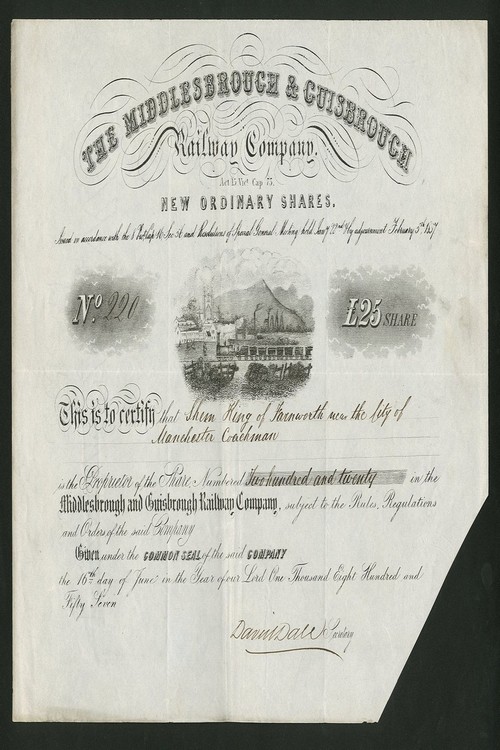 THE MIDDLESBROUGH & GUISBROUGH
Railway Company.
Act 15 Vict. Cap. 73.
NEW ORDINARY SHARES.
Issued in accordance with the and Resolutions of Special General Meeting held Jany 22nd & by adjournment February 5th 1857
No. 220
£25 SHARE
This is to certify that Shem King of Farnworth near the City of
Manchester Coachman
is the Proprietor of the Share Numbered Two hundred and twenty in the
Middlesbrough and Guisbrough Railway Company, subject to the Rules, Regulations
and Orders of the said Company
Given under the COMMON SEAL of the said COMPANY
the 16th day of June in the Year of our Lord One Thousand Eight Hundred and
Fifty Seven
David Dale Secretary